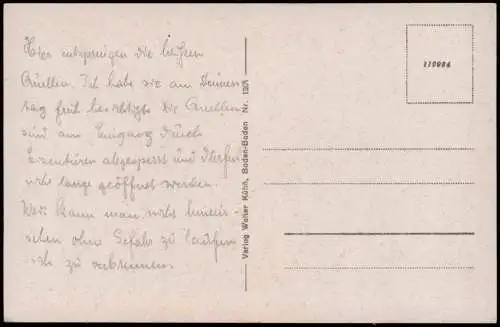 Hier entspringen die heißen
Quellen. Ich habe sie am Donners
tag früh besichtigt. Die Quellen
sind am Eingang durch
abgesperrt und dürfen
nicht lange geöffnet werden.
Weit kann man nicht hinein-
gehen ohne Gefahr zu laufen
sich zu verbrennen.
Verlag Walter Kühn, Baden-Baden Nr.
110084